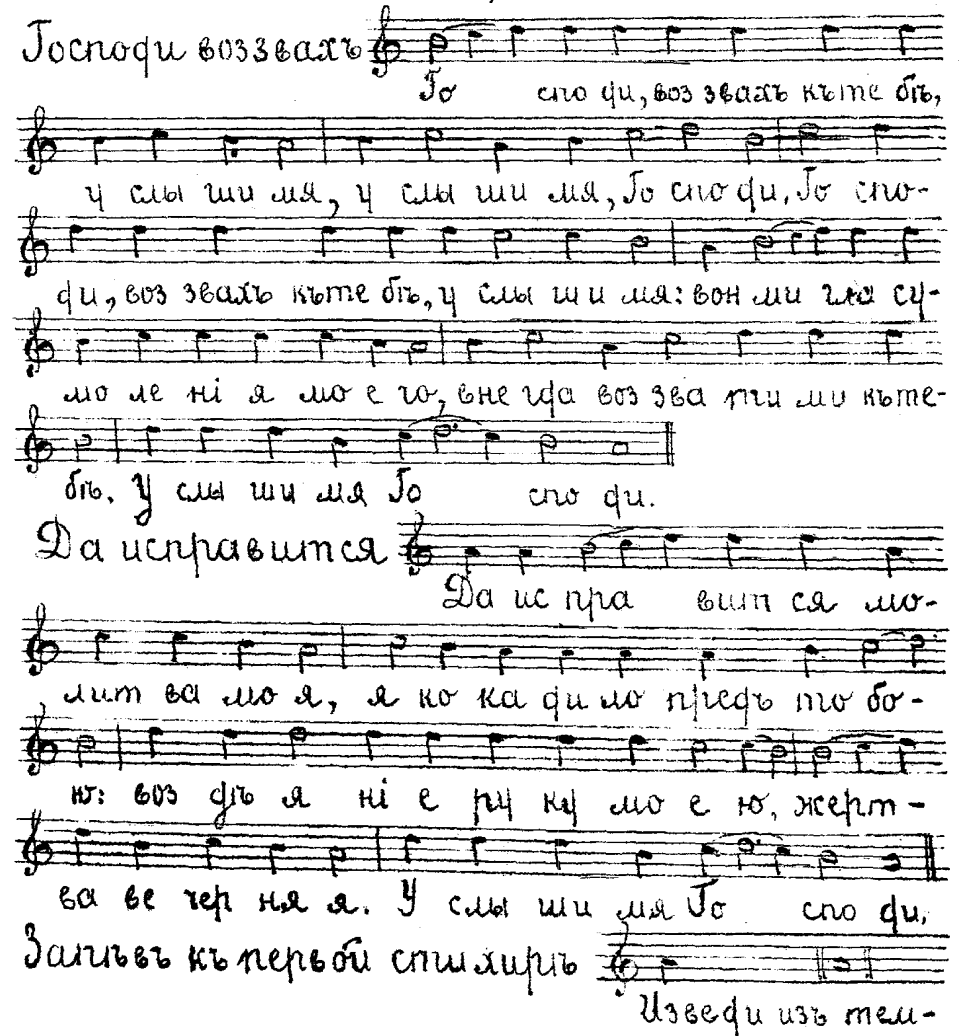 Господи воззвахъ
Го спо ди, воз звахъ къ те бѣ,
у слы ши мя, у слы ши мя, Го спо ди. Го спо-
ди, воз звахъ къ те бѣ, у слы ши мя: вон ми гла су-
мо ле ні я мо е го, вне гда воз зва ти ми къ те-
бѣ. У слы ши мя Го спо ди.
Да исправится
Да ис пра вит ся мо-
лит ва мо я, я ко ка ди ло предъ то бо-
ю: воз дѣ я ні е ру ку мо е ю, жерт-
ва ве чер ня я. У слы ши мя Го спо ди.
Запѣвъ къ первой стихирѣ
Изведи изъ тем-